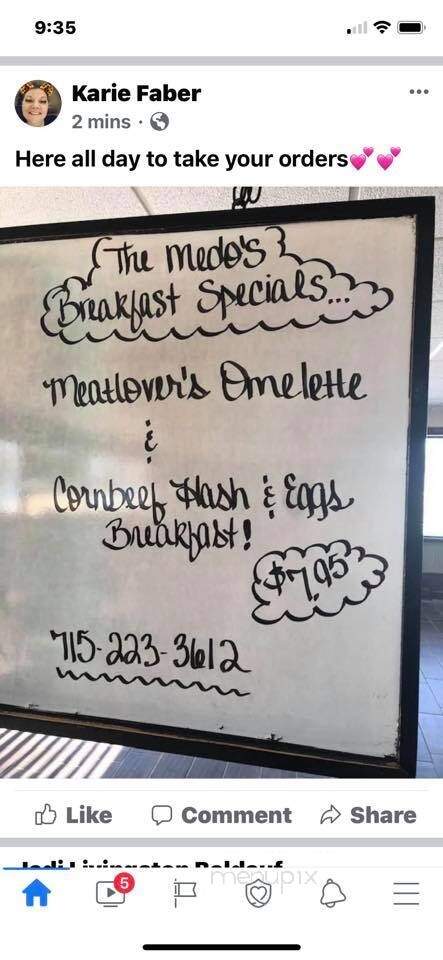 9:35
Karie Faber
2 mins ·
Here all day to take your orders💕💕
The Medo's
Breakfast Specials...
Meatlover's Omelette
&
Cornbeef Hash & Eggs
Breakfast!
$7.95
715-223-3612
Like Comment Share
Jodi Livingston
5
menupix